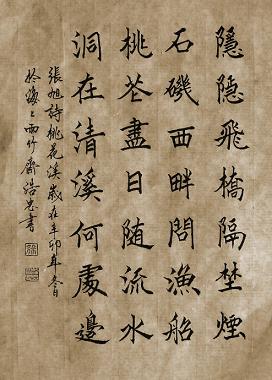 隱隱飛橋隔埜煙
石磯西畔問漁船
桃花盡日随流水
洞在清溪何處邊
張旭詩桃花溪歲在辛卯年春日
於海上雨竹齋浩忠書